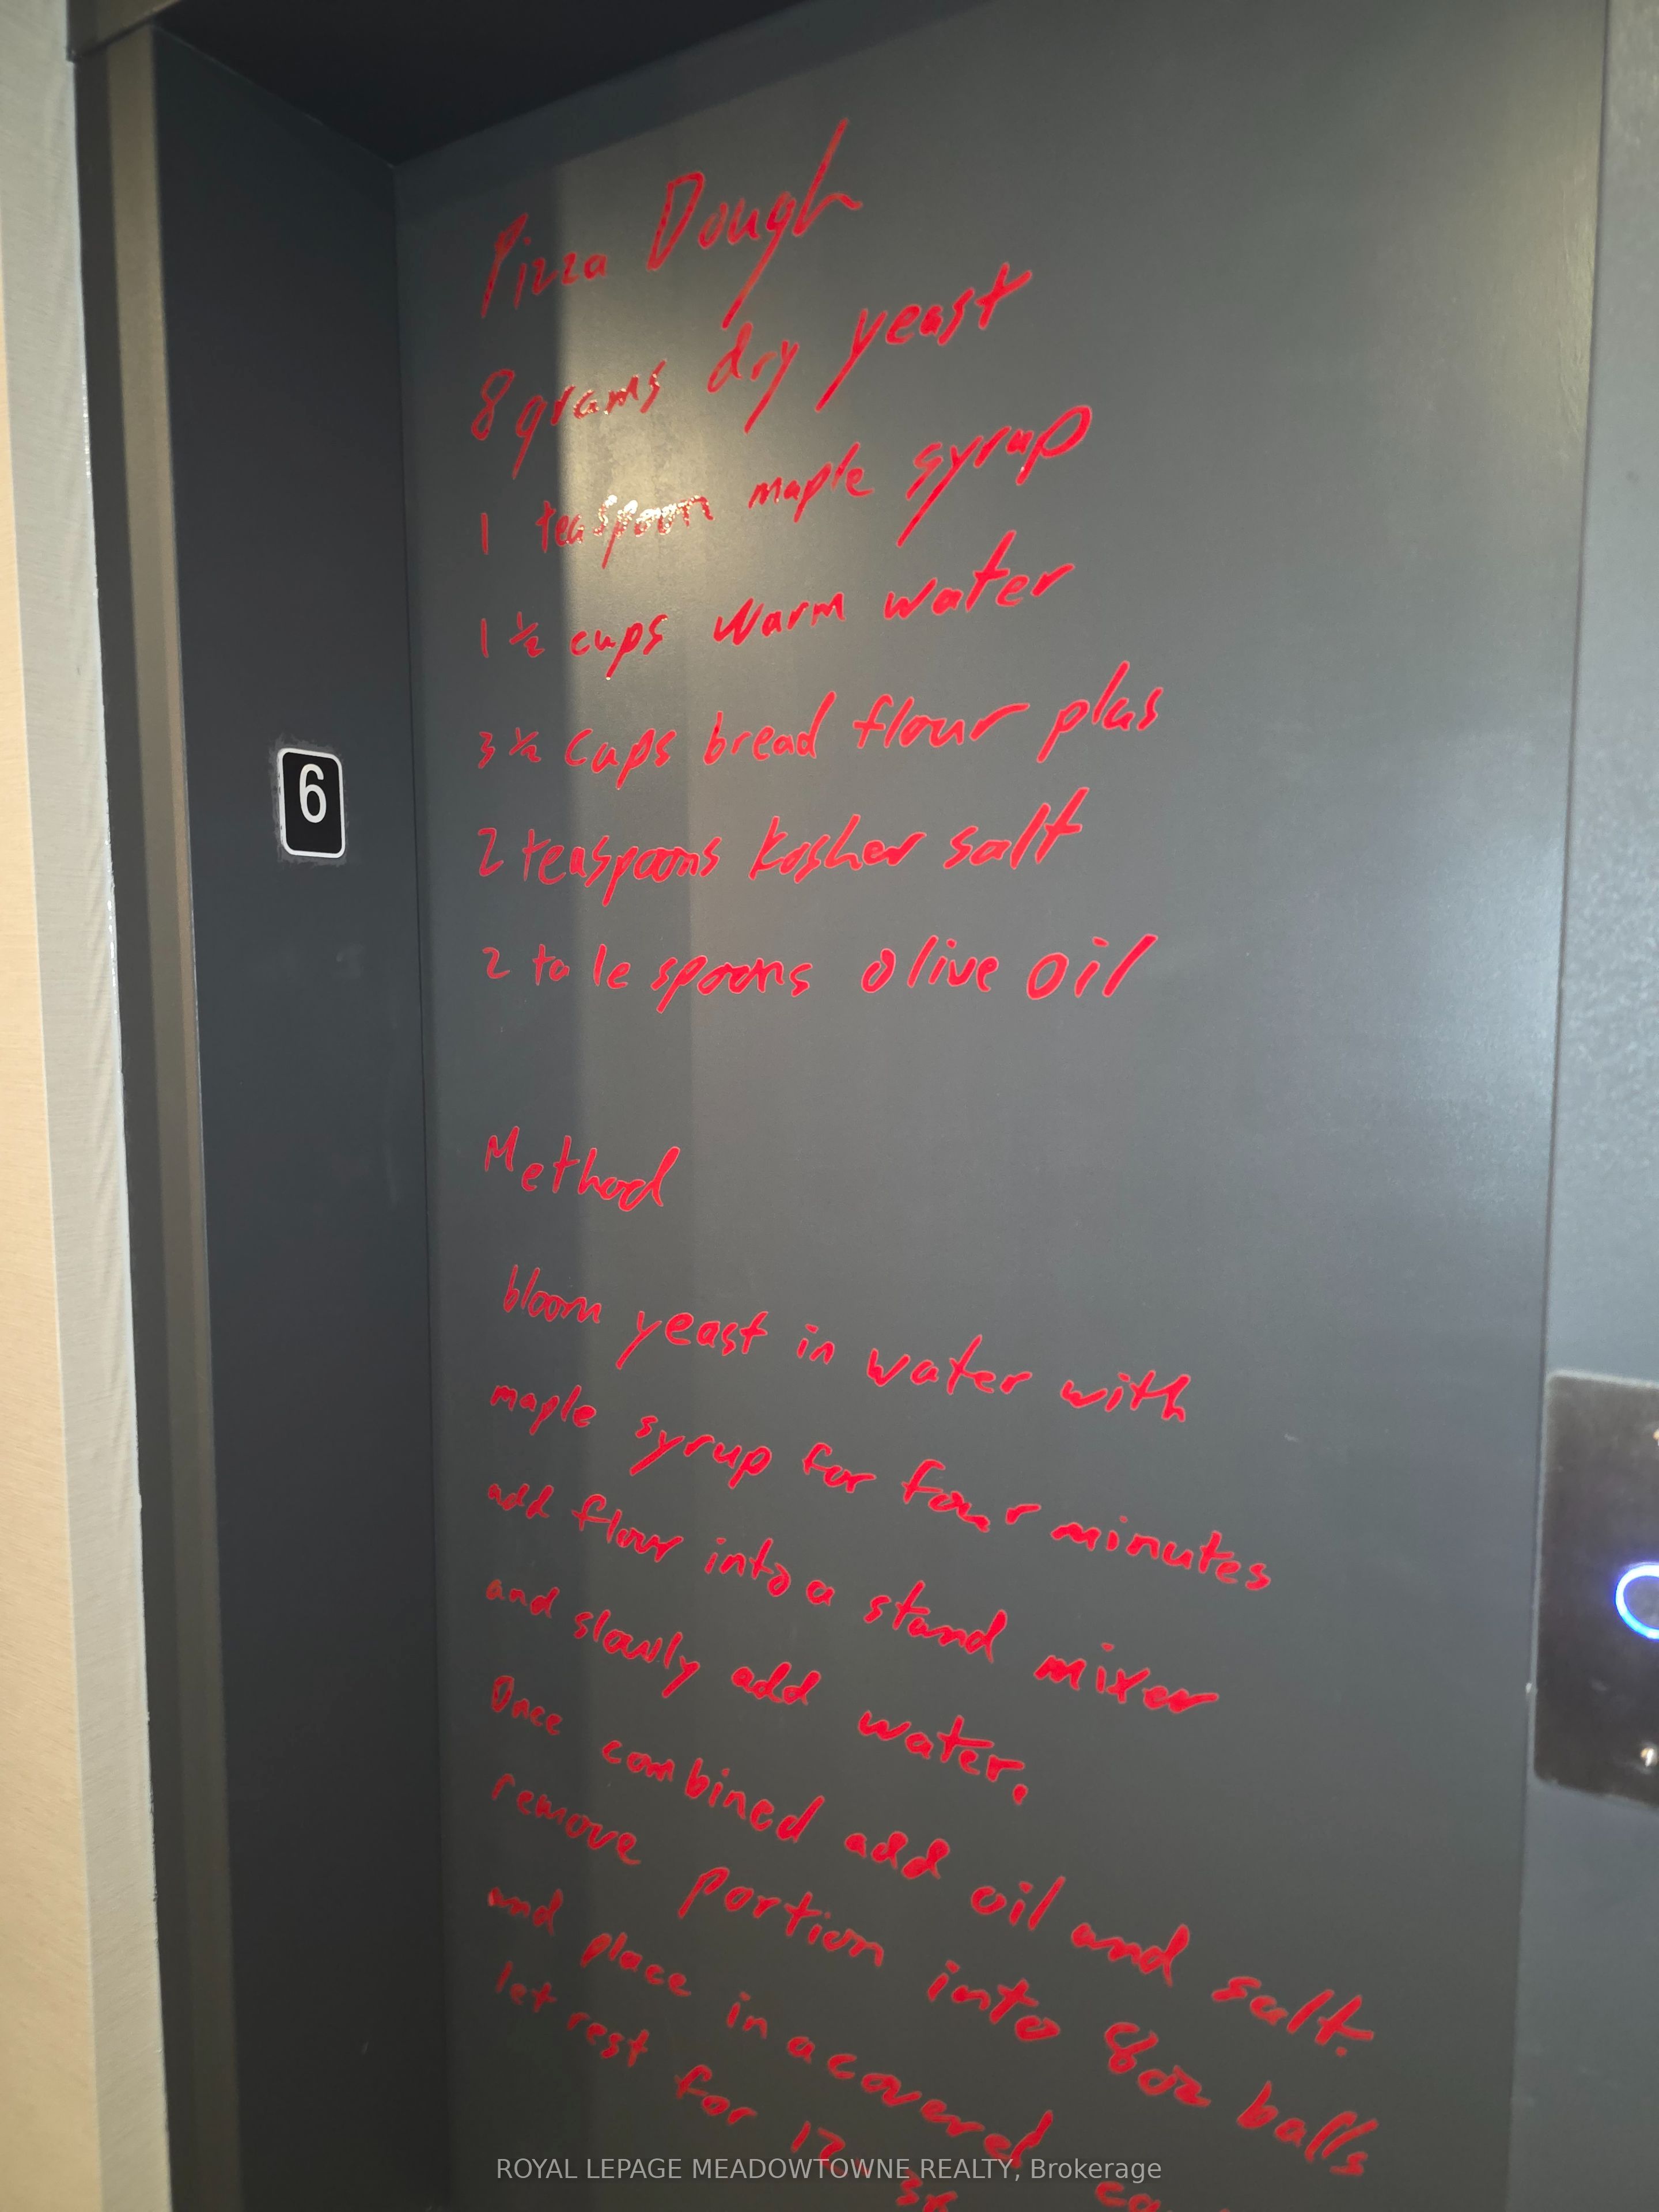 Pizza Dough
8 grams dry yeast
1 teaspoon maple syrup
1 ½ cups warm water
3 ½ cups bread flour plus
2 teaspoons kosher salt
2 ta le spoons olive oil
Method
bloom yeast in water with
maple syrup for four minutes
add flour into a stand mixer
and slowly add water.
Once combined add oil and salt.
remove portion into 8oz balls
and place in a covered
let rest for 12
6
ROYAL LEPAGE MEADOWTOWNE REALTY, Brokerage